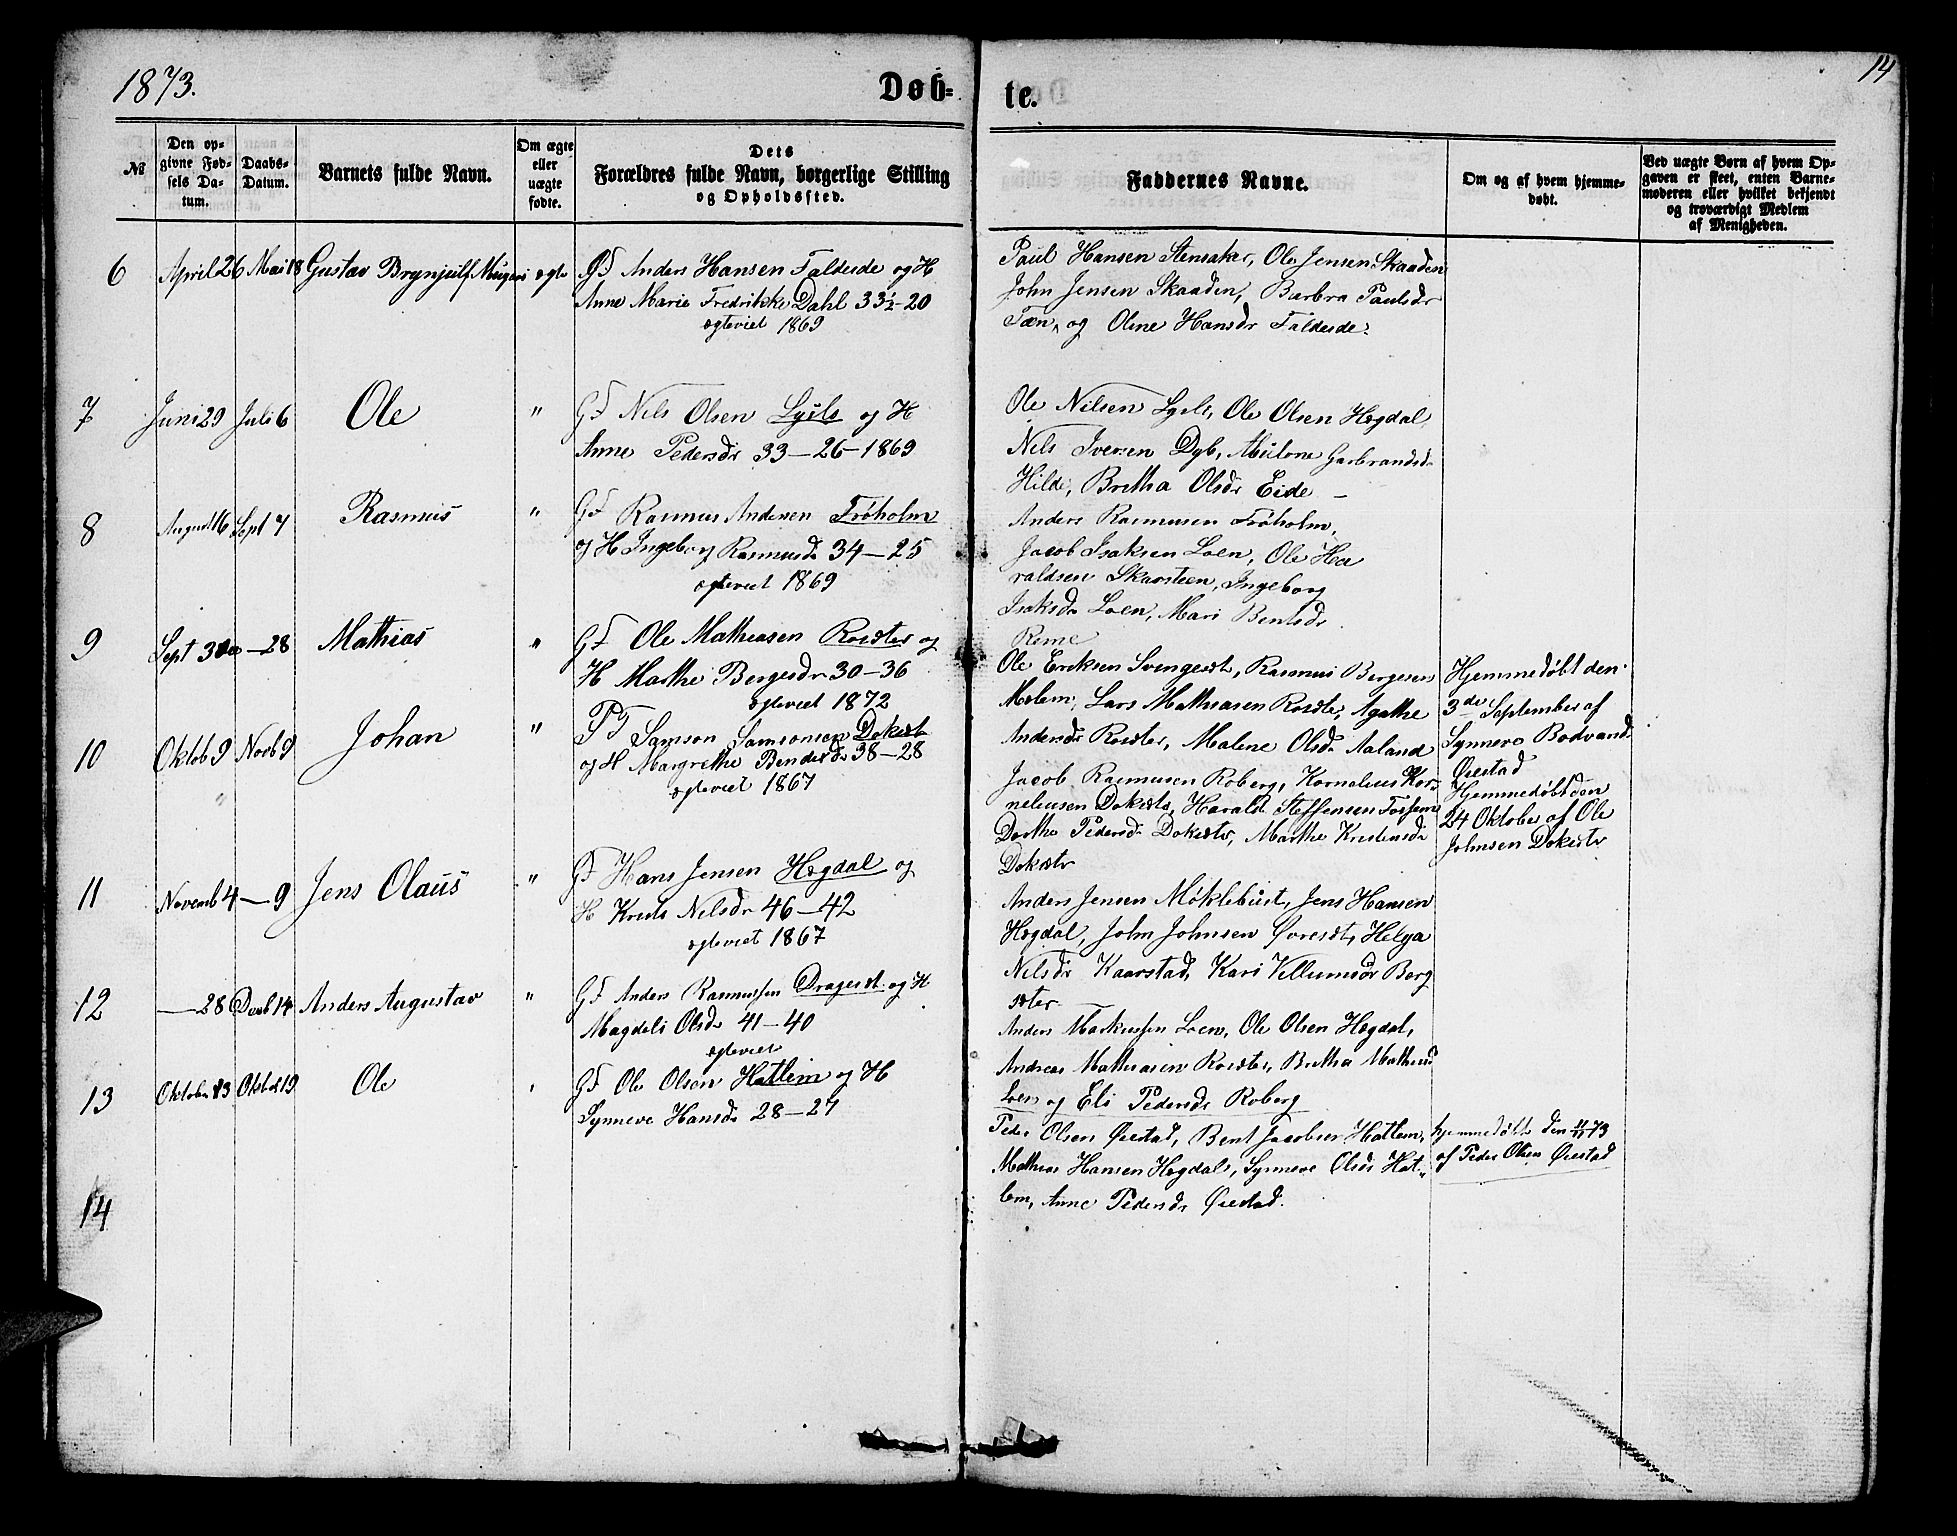 1873.
Døb-
te.
14
№
Den op-
givne Fød-
sels Da-
tum.
Daabs-
Datum.
Barnets fulde Navn.
Om ægte
eller
uægte
fødte.
Dets
Forældres fulde Navn, borgerlige Stilling
og Opholdssted.
Faddernes Navne.
Om og af hvem hjemme-
døbt.
Ved uægte Børn af hvem Op-
gaven er skeet, enten Barne-
moderen eller hvilket bekjendt
og troværdigt Medlem
af Menigheden.
6 April 26 Mai 18 Gustav Brynjulf ægte
GF Anders Hansen Faldeide og H
Anne Marie Fredrikke Dahl 33½-20
ægteviet 1869
Paul Hansen Stensaker, Ole Jensen Skaaden
John Jensen Skaaden, Barbra Paulsdr
og Oline Hansdr Faldeide.
7 Juni 29 Juli 6 Ole "
GF Nils Olsen Lyslo og H
Anne Pedersdr 33-26-1869
Ole Nilsen Lyslo, Ole Olsen Hogdal,
Nils Iversen Dyb, Garbrandsd.
Hilde, Britha Olsdr Eide -
8 August 16 Sept 7 Rasmus "
GF Rasmus Andersen Trøholm
og H Ingeborg Rasmusdr 34-25
ægteviet 1869
Anders Rasmusen Trøholm,
Jacob Isaksen Loen, Ole Ha
raldsen Skaarsteen, Ingeborg
Isaksdr Loen, Mari Bentsdr
9 Sept 3 -28 Mathias "
GF Ole Mathiasen Rosæter og
H Marthe Bergesdr 30-36
ægteviet 1872
Ole Eriksen Svengesæt, Rasmus Bergesen
Melem, Lars Mathiasen Rosæter, Agathe
Andersdr Rosæter, Malene Olsdr Aaland
Hjemmedøbt den
3de September af
Synneve Bodvands
Ørestad
10 Oktob 9 Novb 9 Johan "
PF Samson Samsonsen Dokset
og H Margrethe Bendesdr 38-28
ægteviet 1867
Jacob Rasmusen Roberg, Kornelius Kor-
neliusen Doksæter, Harald Steffensen
Dorthe Pedersdr Doksæter, Marthe Kristensdr
Doksæter
Hjemmedøbt den
24 Oktober af Ole
Johnsen Doksæter
11 Novemb 4 - 9 Jens Olaus "
GF Hans Jensen Hogdal og
H Nilsdr 46-42
ægteviet 1867
Anders Jensen Møklebust, Jens Hansen
Hogdal, John Johnsen Øvresæt, Helga
Nilsdr Kaarstad, Kari Villumsdr Berg
sæter
12 -28 Decb 14 Anders Augustav "
GF Anders Rasmussen Dragesæt og H
Magdeli Olsdr 41-40
ægteviet
Anders Markussen Loen, Ole Olsen Hogdal,
Andreas Mathiasen Rosæter, Britha Mathiasd
Loen og Eli Pedersdr Roberg
13 Oktober 13 Oktob 19 Ole "
GF Ole Olsen Hatlem og H
Synneve Hansdr 28-27
Peder Olsen Ørestad, Bent Jacobsen Hatlem,
Mathias Hansen Hogdal, Synneve Olsdr Hat-
lem, Anne Pedersdr Ørestad.
hjemmedøbt den 73
af Peder Olsen Ørestad
14